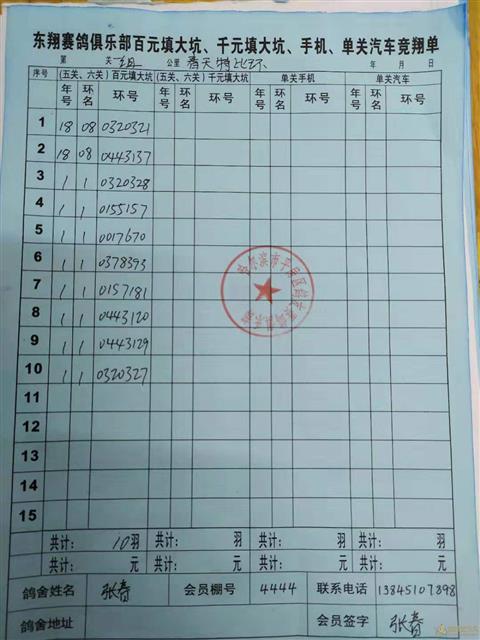 东翔赛鸽俱乐部百元填大坑、千元填大坑、手机、单关汽车竞翔单
第 关 一组 公里 春天特比环 年 月 日
序号 (五关、六关)百元填大坑 (五关、六关)千元填大坑 单关手机 单关汽车
年号 环名 环号 年号 环名 环号 年号 环名 环号 年号 环名 环号
1 18 08 0320321
2 18 08 0443137
3 1 1 0320328
4 1 1 0155157
5 1 1 0017670
6 1 1 0378393
7 1 1 0157181
8 1 1 0443120
9 1 1 0443129
10 1 1 0320327
11
12
13
14
15
共计: 10羽 共计: 羽 共计: 羽 共计: 羽
共计: 元 共计: 元 共计: 元 共计: 元
鸽舍姓名 张春 会员棚号 4444 联系电话 13845107898
鸽舍地址 会员签字 张春